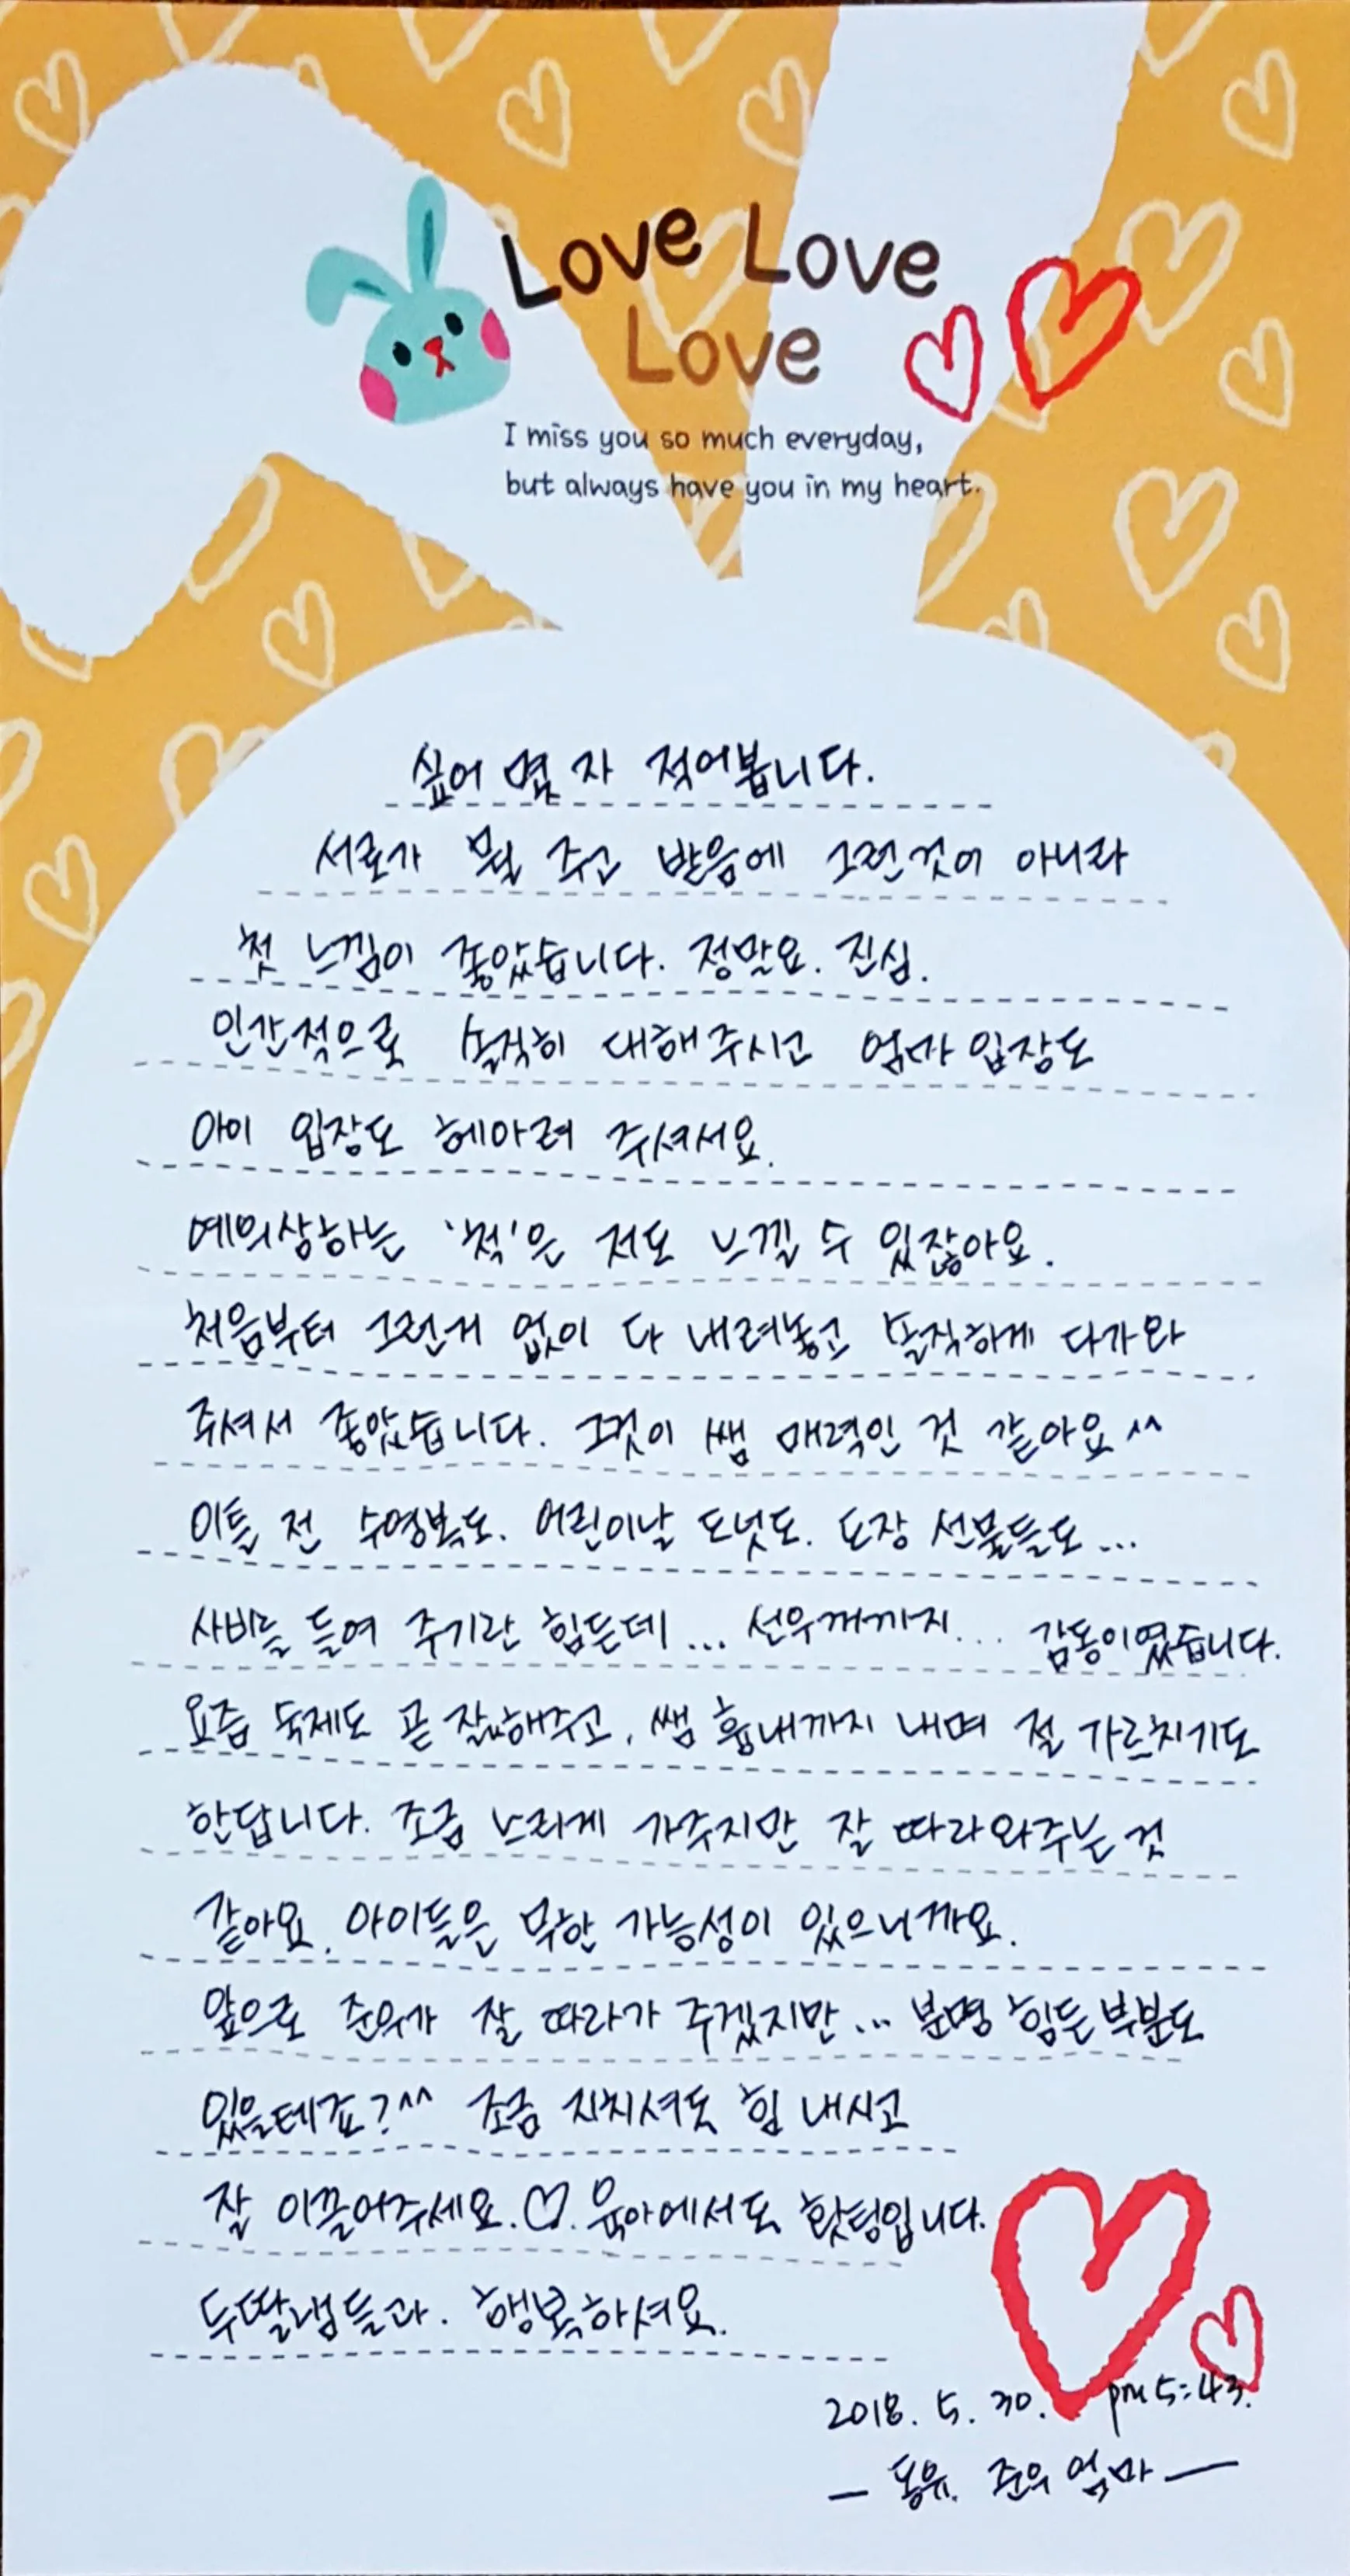 Love Love
Love
I miss you so much everyday,
but always have you in my heart.
싶어 몇 자 적어봅니다.
서로가 뭘 주고 받음에 그런것이 아니라
첫 느낌이 좋았습니다. 정말요. 진심.
인간적으로 솔직히 대해주시고 엄마입장도
아이 입장도 헤아려 주셔서요.
예의상하는 '척'은 저도 느낄 수 있잖아요.
처음부터 그런게 없이 다 내려놓고 솔직하게 다가와
주셔서 좋았습니다. 그것이 쌤 매력인 것 같아요^^
이틀 전 수영복도. 어린이날 도넛도. 도장 선물들도...
사비를 들여 주기란 힘든데... 선우꺼까지... 감동이였습니다.
요즘 숙제도 곧잘해주고, 쌤 흉내까지 내며 절 가르치기도
한답니다. 조금 느리게 가주지만 잘 따라와주는 것
같아요. 아이들은 무한 가능성이 있으니까요.
앞으로 준우가 잘 따라가 주겠지만... 분명 힘든부분도
있을테죠?^^ 조금 지치셔도 힘 내시고
잘 이끌어주세요.♡. 육아에서도 홧팅입니다.
두딸램들과. 행복하셔요.
2018. 5. 30. pm 5:43.
— 동유. 준우 엄마 —